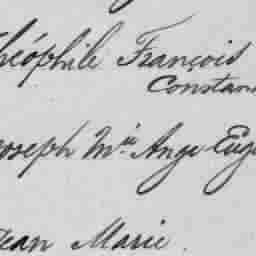 Théophile François
Constan
Joseph Mie Ange Eug
Jean Marie.